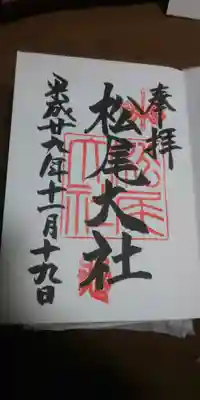 奉拝
松尾大社
平成廿六年十一月十九日
松尾大社